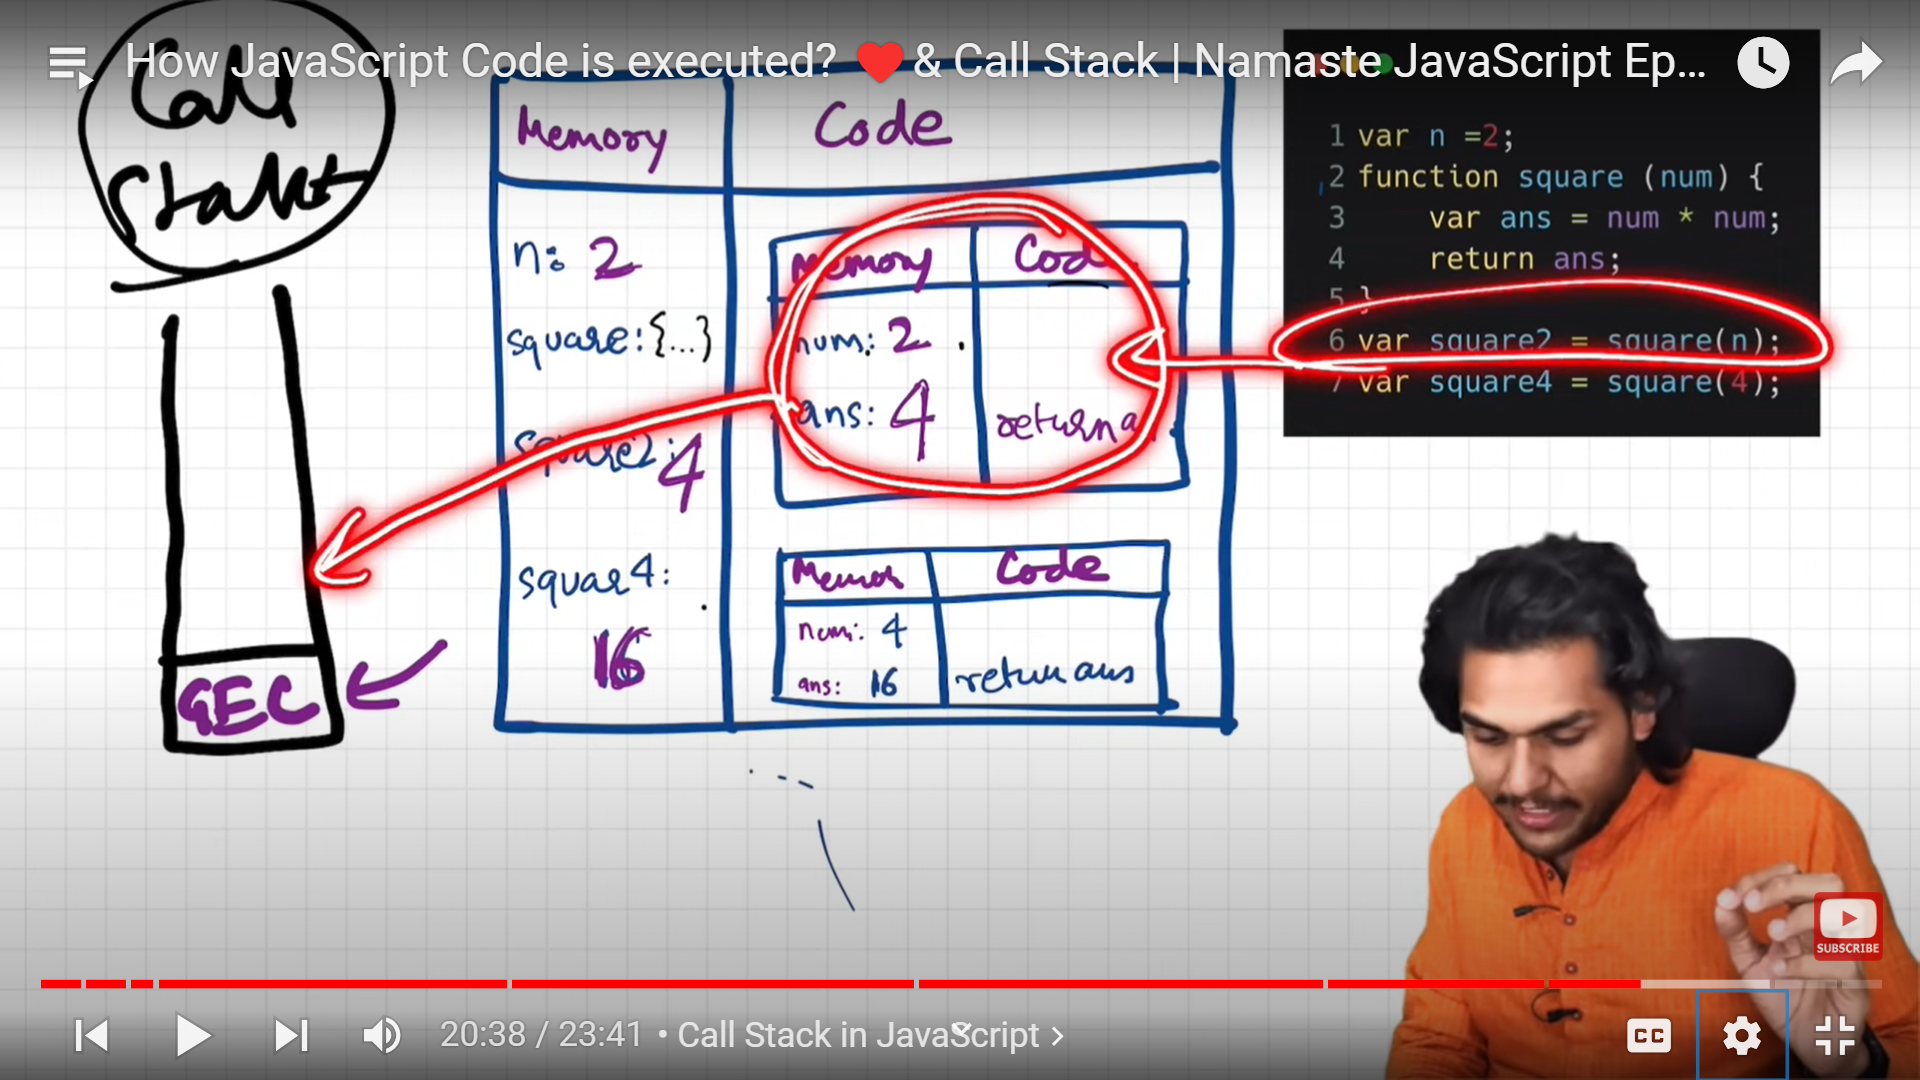 How JavaScript Code is executed? ❤️ & Call Stack | Namaste JavaScript Ep...
Call
Stakt
Memory
Code
n: 2
square: {...}
square2: 4
squar4:
16
Memory
Code
num: 2
ans: 4
return a
Code
num: 4
ans: 16
return ans
GEC
1 var n =2;
2 function square (num) {
3 var ans = num * num;
4 return ans;
5 }
6 var square2 = square(n);
7 var square4 = square(4);
SUBSCRIBE
20:38 / 23:41 • Call Stack in JavaScript >
CC